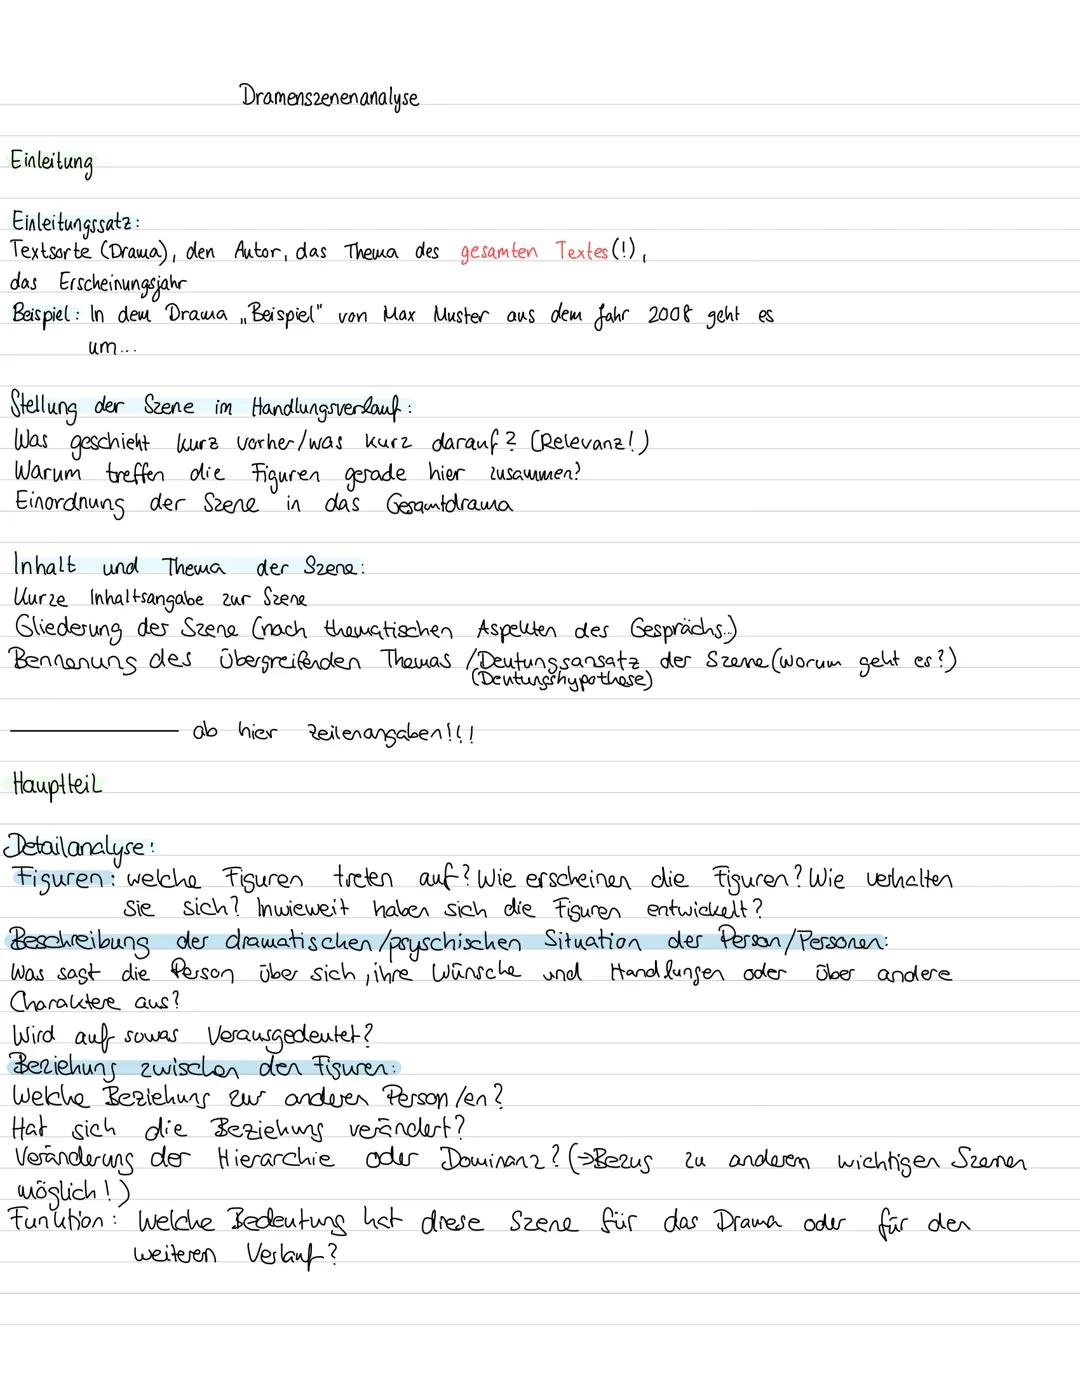 Dramenszenenanalyse
Einleitung
Einleitungssatz:
Textsorte (Drama), den Autor, das Thema des gesamten Textes(!),
das Erscheinungsjahr
Beispiel: In dem Drama „Beispiel" von Max Muster aus dem Jahr 2008 geht es
um...
Stellung der Szene im Handlungsverlauf:
Was geschieht kurz vorher/was kurz darauf? (Relevanz!)
Warum treffen die Figuren gerade hier zusammen?
Einordnung der Szene in das Gesamtdrama
Inhalt und Thema der Szene:
Kurze Inhaltsangabe zur Szene
Gliederung der Szene (nach thematischen Aspekten des Gesprächs..)
Bennenung des übergreifenden Themas /Deutungsansatz der Szene (worum geht es?)
(Deutungshypothese)
ab hier Zeilenangaben!!!
Hauptteil
Detailanalyse:
Figuren: welche Figuren treten auf? Wie erscheinen die Figuren? Wie verhalten
sie sich? Inwieweit haben sich die Figuren entwickelt?
Beschreibung der dramatischen/psyschischen Situation der Person/Personen:
Was sagt die Person über sich, ihre Wünsche und Handlungen oder über andere
Charaktere aus?
Wird auf sowas Vorausgedeutet?
Beziehung zwischen den Figuren:
Welche Beziehung zur anderen Person/en?
Hat sich die Beziehung verändert?
Veränderung der Hierarchie oder Dominanz? (→Bezug zu anderem wichtigen Szenen
möglich!)
Funktion: Welche Bedeutung hat diese Szene für das Drama oder für den
weiteren Verlauf?